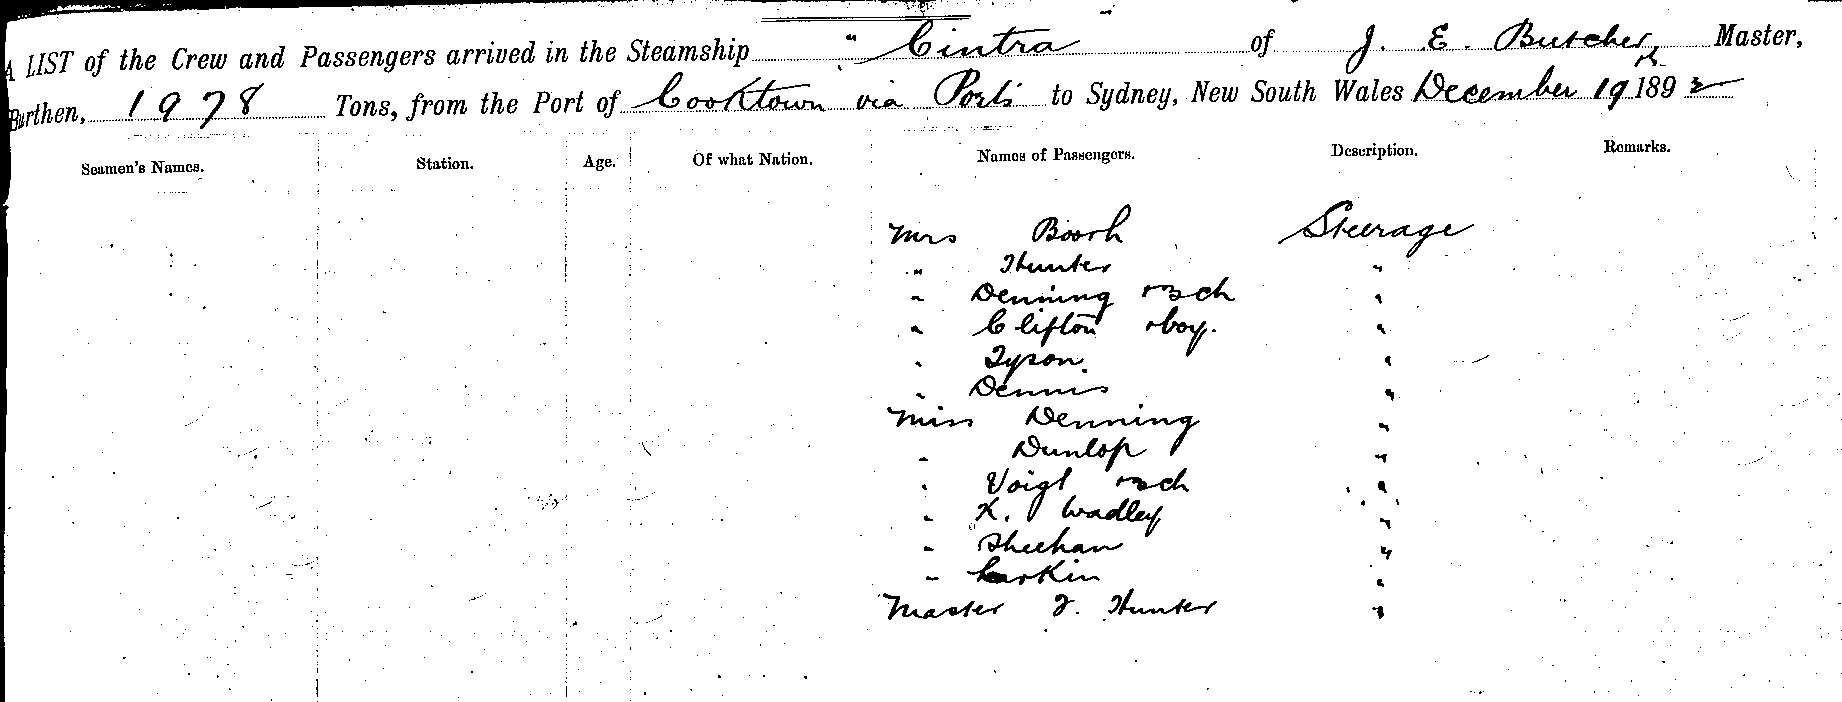 A LIST of the Crew and Passengers arrived in the Steamship "Cintra of J. E. Butcher, Master,
Burthen, 1978 Tons, from the Port of Cooktown via Ports to Sydney, New South Wales December 19th 1892
Seamen's Names. Station. Age. Of what Nation. Names of Passengers. Description. Remarks.
Mrs Booth Steerage
" Hunter "
" Denning & 3 ch "
" Clifton & boy. "
" Tyson "
" Dennis "
Miss Denning "
" Dunlop "
" Voigt & 3 ch "
" K. Wadley "
" Sheehan "
" Larkin "
Master J. Hunter "